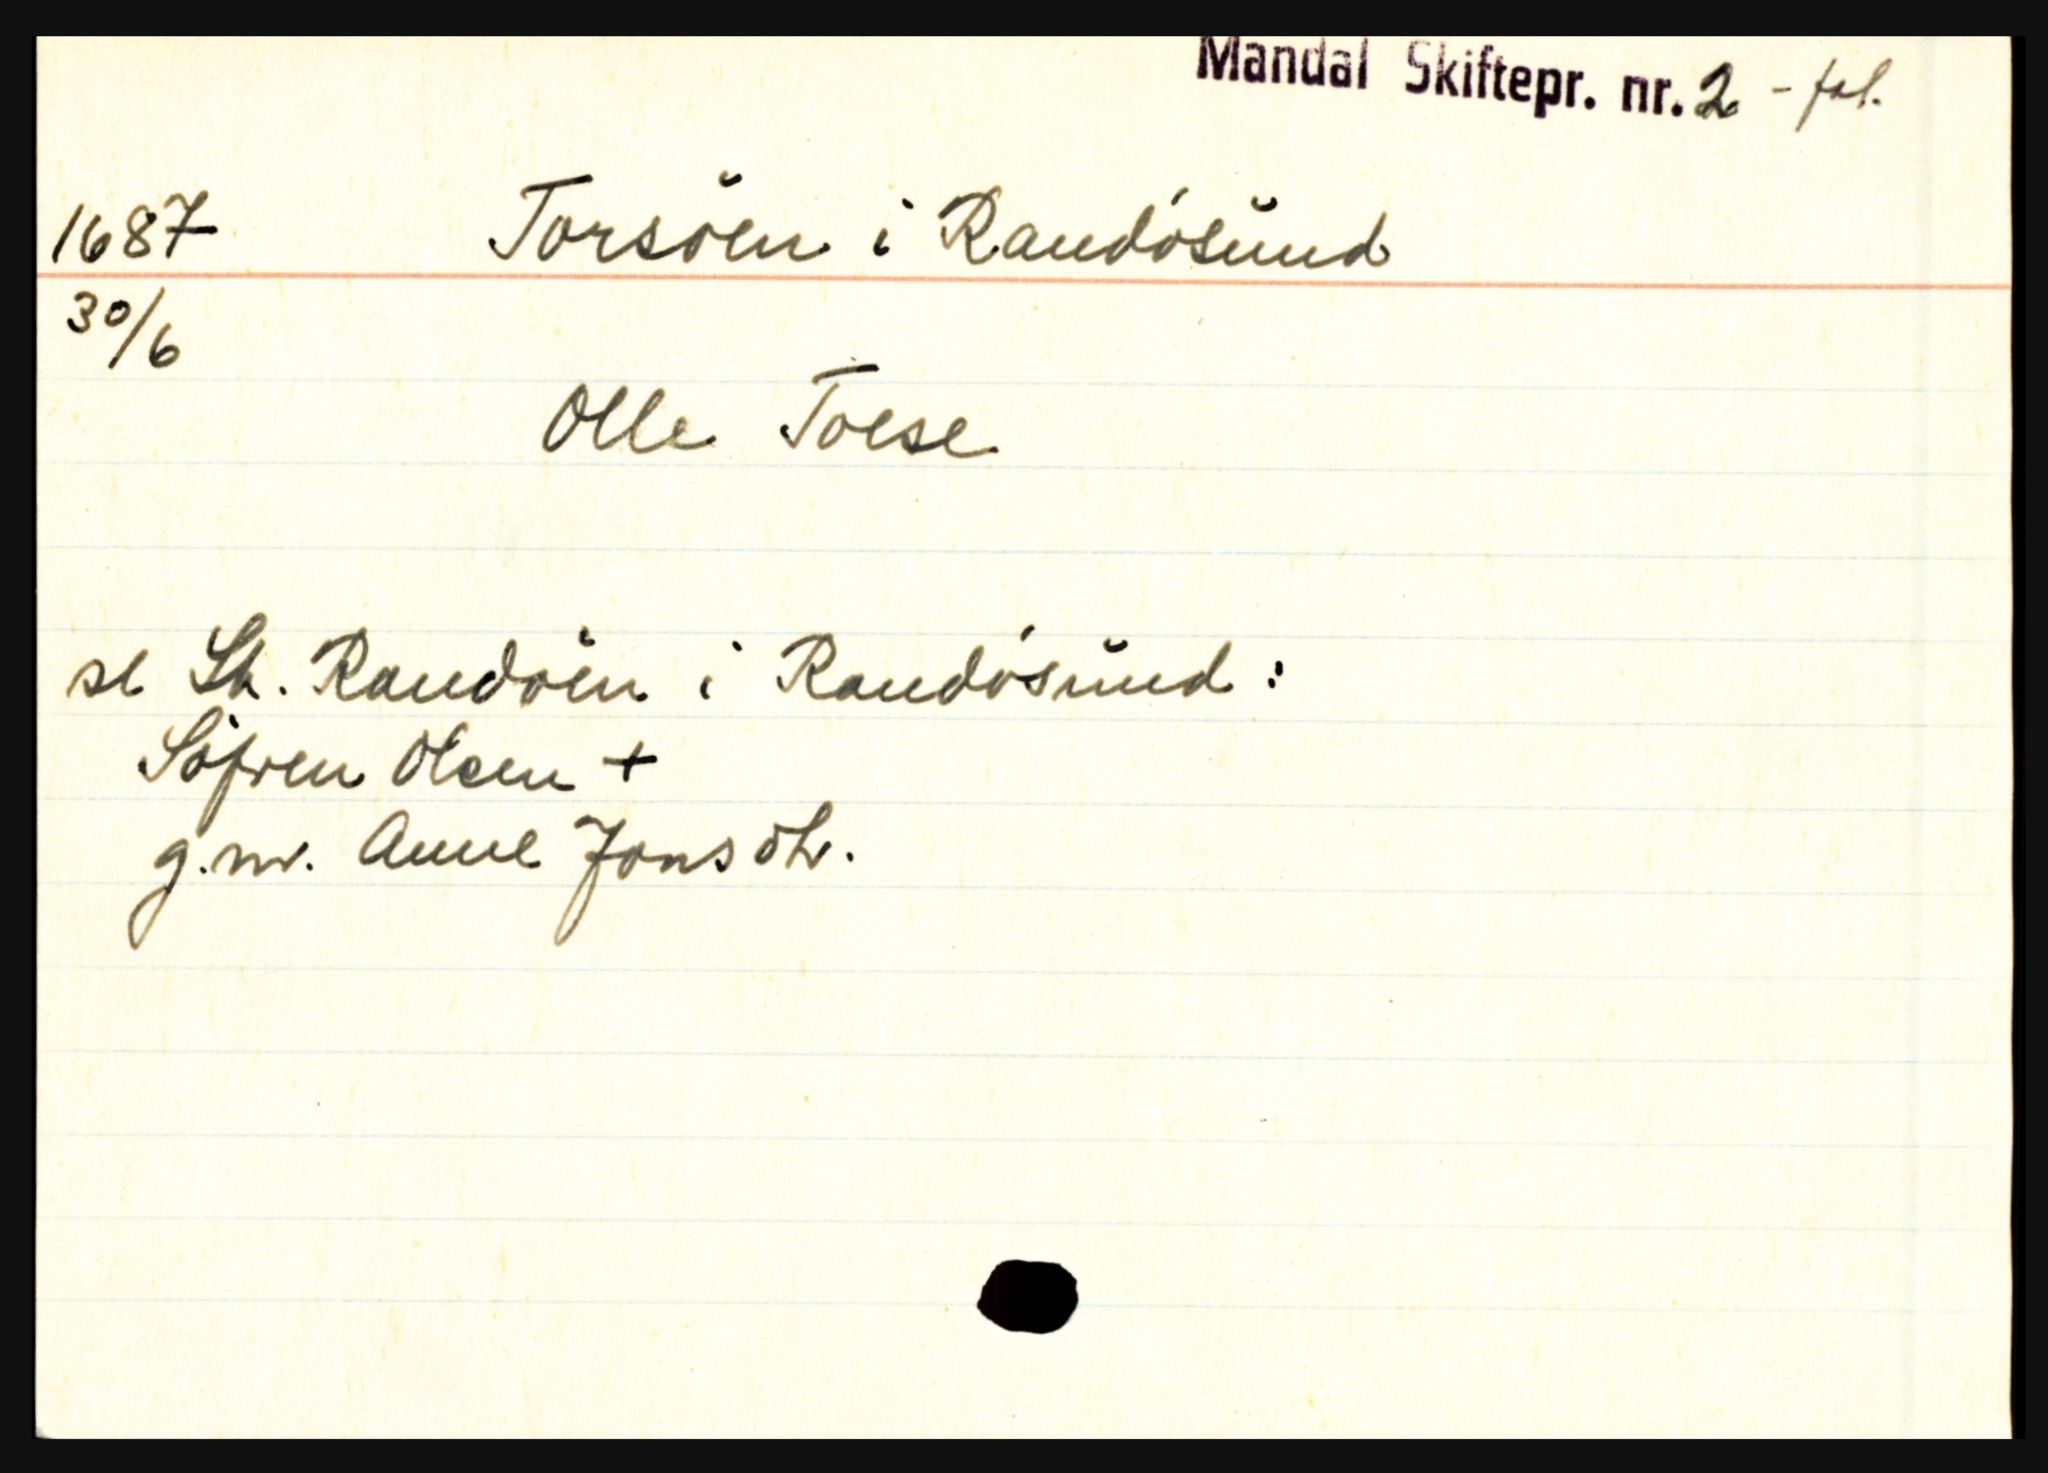 Mandal Skiftepr. nr. 2 - fol.
1687 Torsöen i Randósund
30/6
Olle Toese
se St. Randöen i Randósund :
Söfren Olsen +
g.m. Anne Jons dtr.